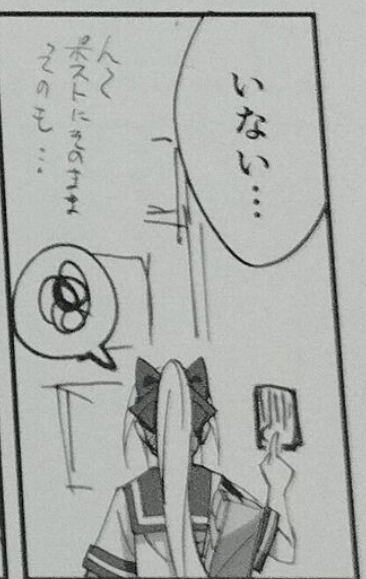 いない…
ん〜
ポストにそのまま
ってのも…